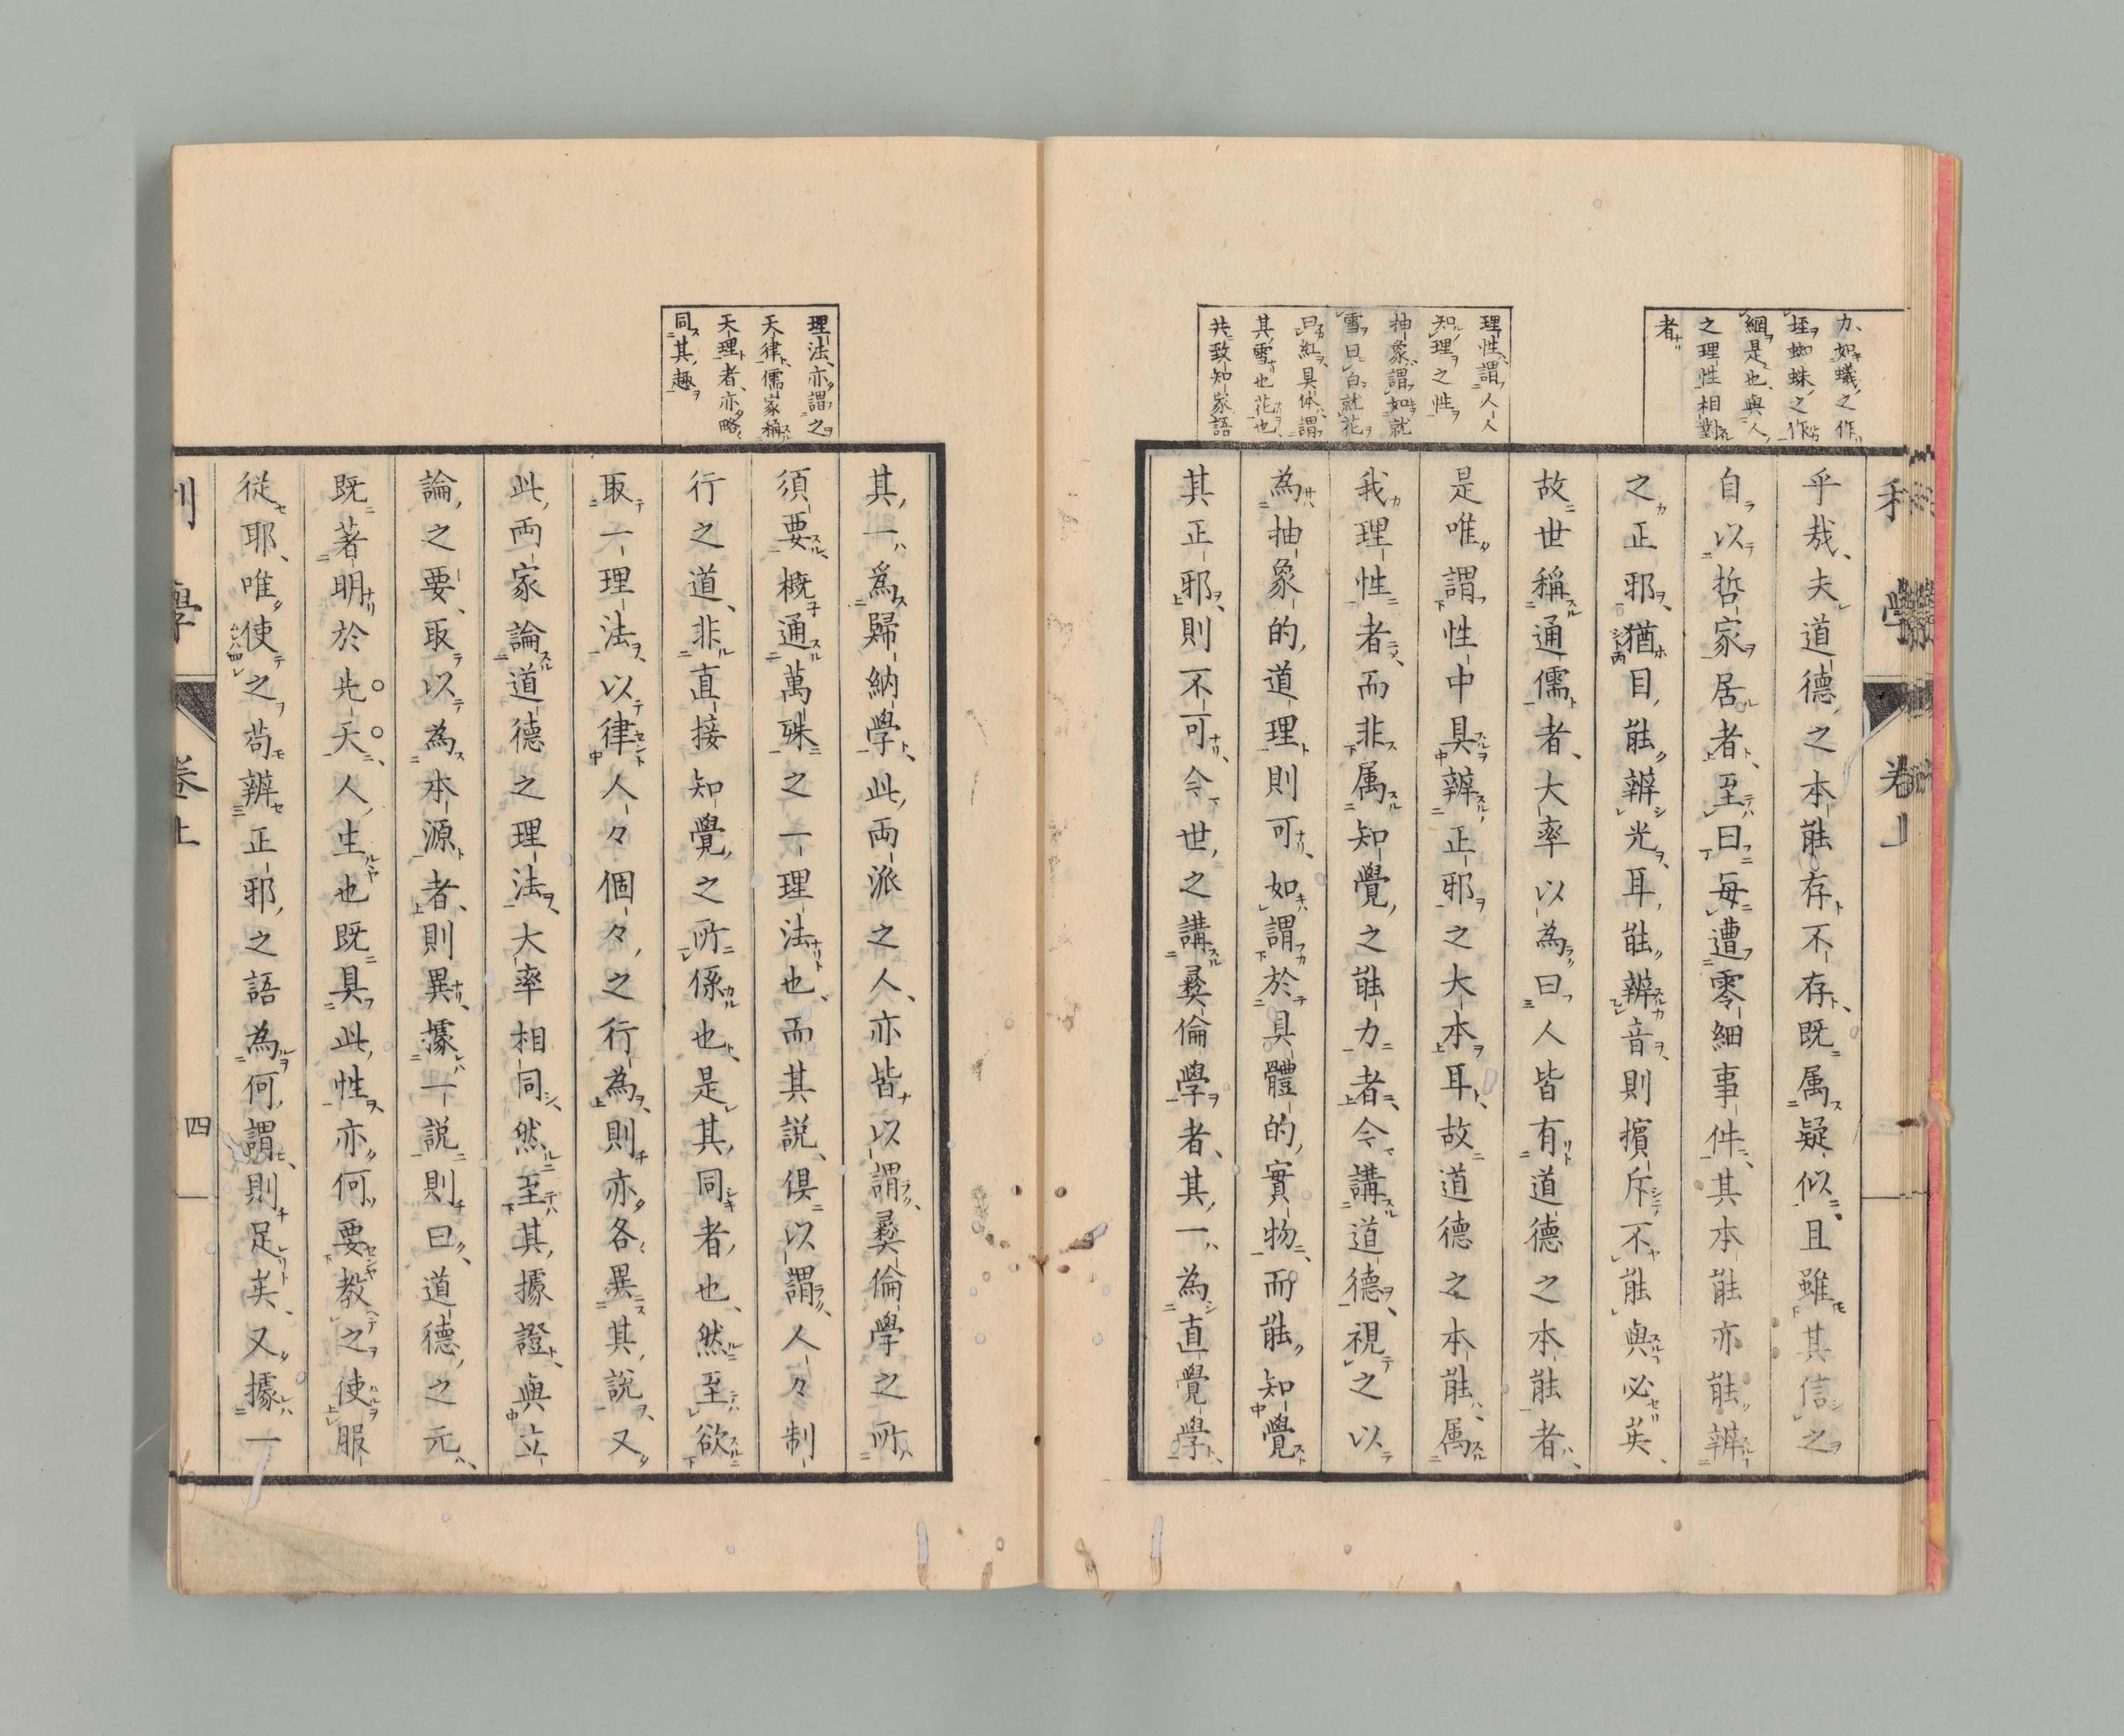 力、如蟻之作
垤蜘蛛之作
網是也、與人
之理性相對
者
理性謂人人
知理之性
抽象謂如就
雪曰白就花
曰紅具体謂
其雪也花也
共致知家語
乎哉、夫道德之本能存不存、既属疑似、且雖其信之
自以哲家居者、至曰每遭零細事件、其本能亦能辨
之正邪、猶目能辨光、耳能辨音、則擯斥不能與必矣、
故世稱通儒者、大率以為曰人皆有道德之本能者、
是唯謂性中具辨正邪之大本耳、故道德之本能、属
我理性者、而非属知覺之能力者、今講道德、視之以
為抽象的道理則可、如謂於具體的實物、而能知覺
其正邪、則不可、今世之講彝倫學者、其一為直覺學、
理法、亦謂之
天律、儒家稱
天理者、亦略
同其趣
其一為歸納學、此両派之人、亦皆以謂彝倫學之所
須要、概通萬殊之一理法也、而其說、俱以謂人々制
行之道、非直接知覺之所係也、是其同者也、然至欲
取一理法、以律人々個々之行為、則亦各異其說、又
此両家論道德之理法、大率相同、然至其據證、與立
論之要、取以為本源者、則異、據一說則曰、道德之元、
既著明於先天、人生也既具此性、亦何要教之使服
從耶、唯使之苟辨正邪之語為何謂、則足矣、又據一
學
卷上
四